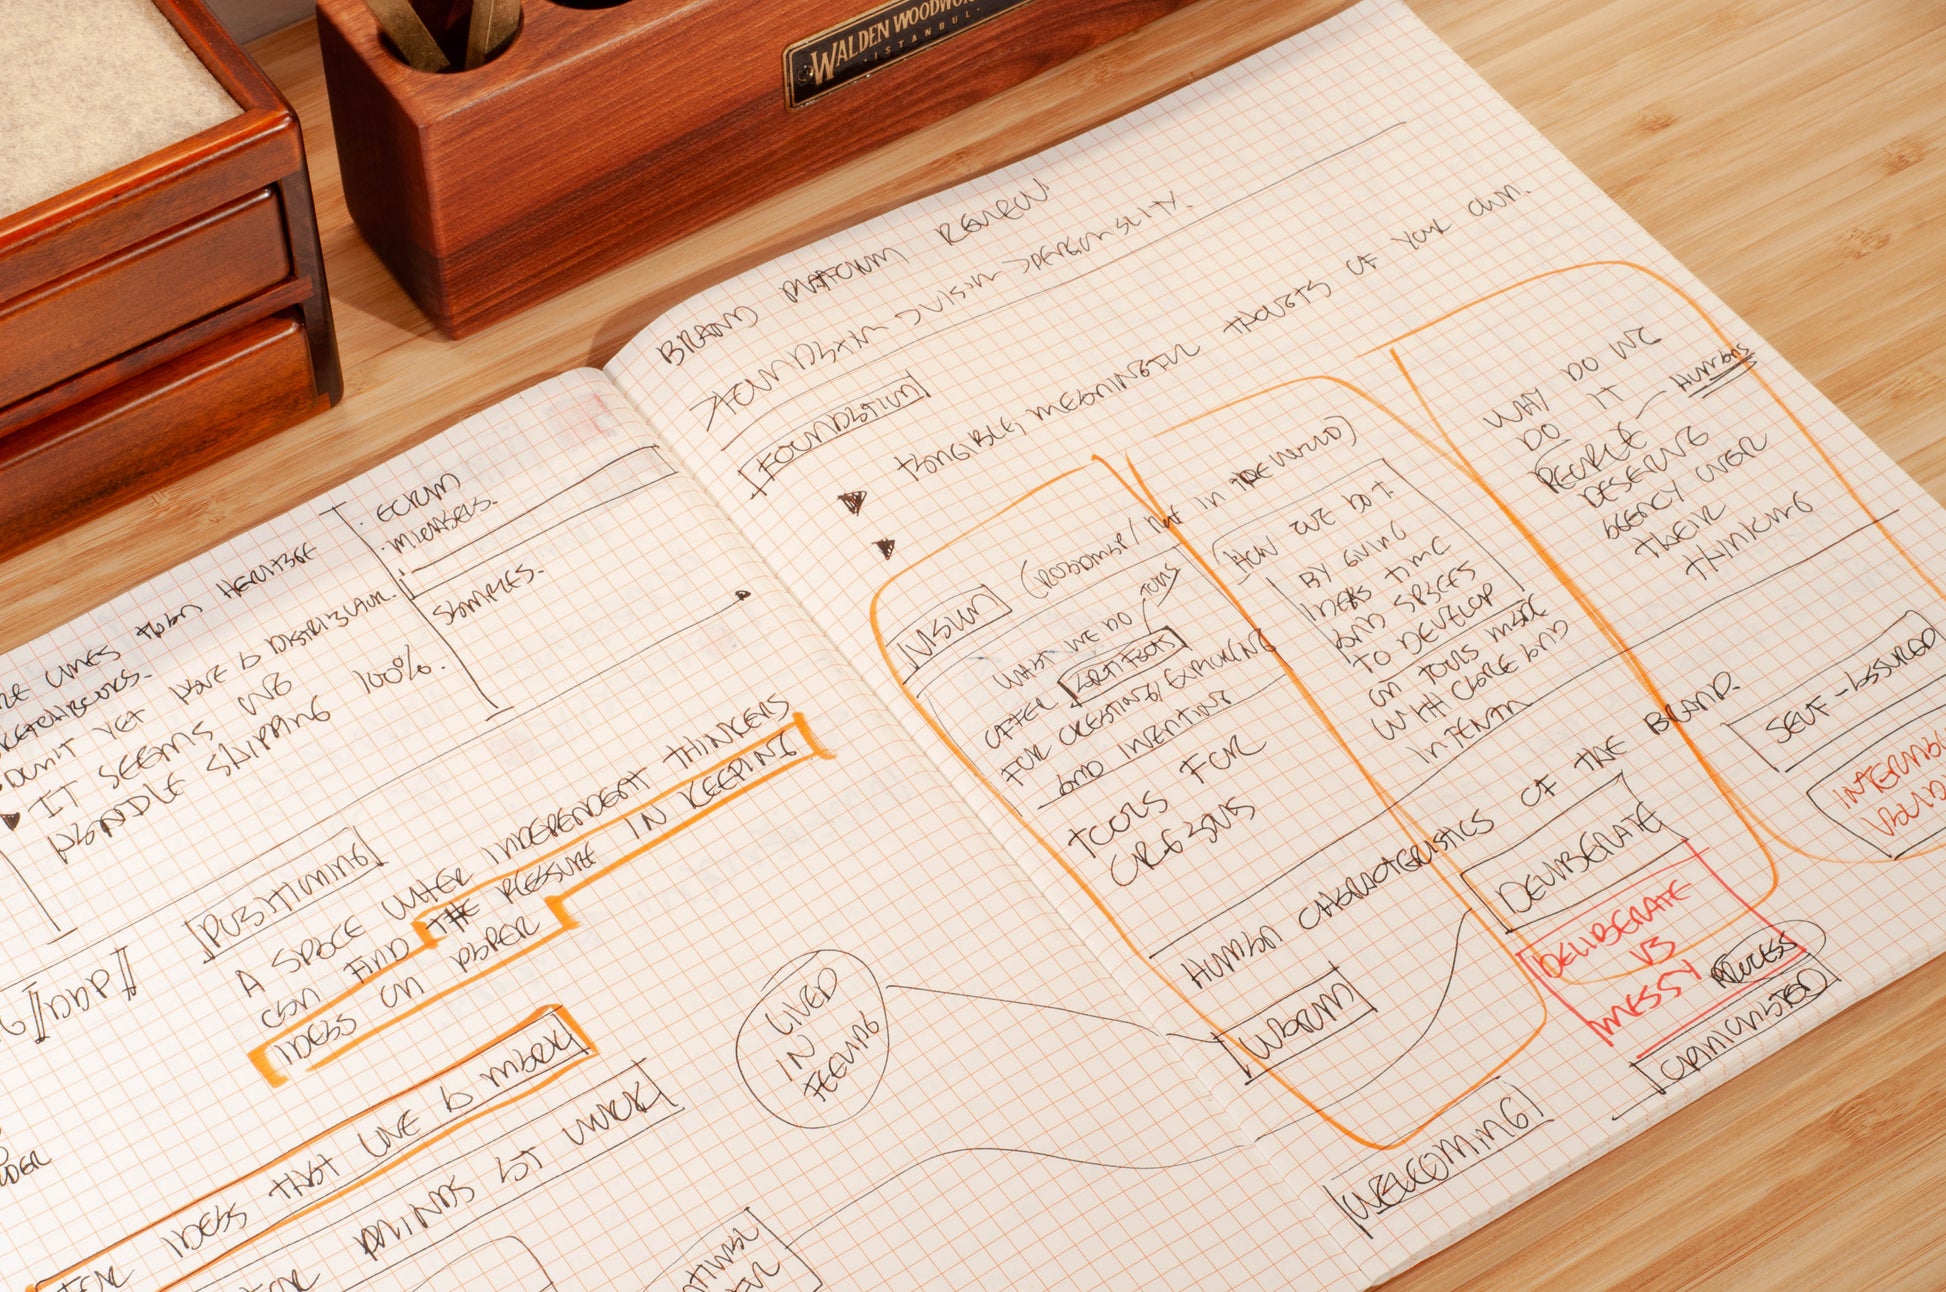 WALDEN WOODWOR
ISTANBUL
BRAND PLATFORM REVIEW
>FOUNDATION >VISION >PERSONALITY.
FOUNDATION
TANGIBLE, MEANINGFUL THOUGHTS OF YOUR OWN.
VISION (ROADMAP / NOT IN THE WORLD)
WHAT WE DO TOOLS
OFFER ARTIFACTS
FOR CREATING/EXPLORING
AND INVENTING
TOOLS FOR
HOW WE DO IT
BY GIVING
IDEAS TIME
AND SPACES
TO DEVELOP
ON TOOLS MADE
WITH CARE AND
INTENTION
WHY DO WE
DO IT
PEOPLE — HUMANS
DESERVE
AGENCY OVER
THEIR
THINKING
HUMAN CHARACTERISTICS OF THE BRAND.
WARM
DELIBERATE
SELF-ASSURED
DELIBERATE
VS
MESSY PROCESS
WELCOMING
LINES THAN HERITAGE
SKETCHBOOKS.
DON'T YET HAVE A DISTRIBUTOR.
IT SEEMS WE
HANDLE SHIPPING 100%.
MEMBERS.
SAMPLES.
POSITIONING
A SPACE WHERE INDEPENDENT THINKERS
CAN FIND THE PLEASURE IN KEEPING
IDEAS ON PAPER
FOR IDEAS THAT LIVE A MESSY
FOR MINDS AT WORK
LIVED
IN
FEELING